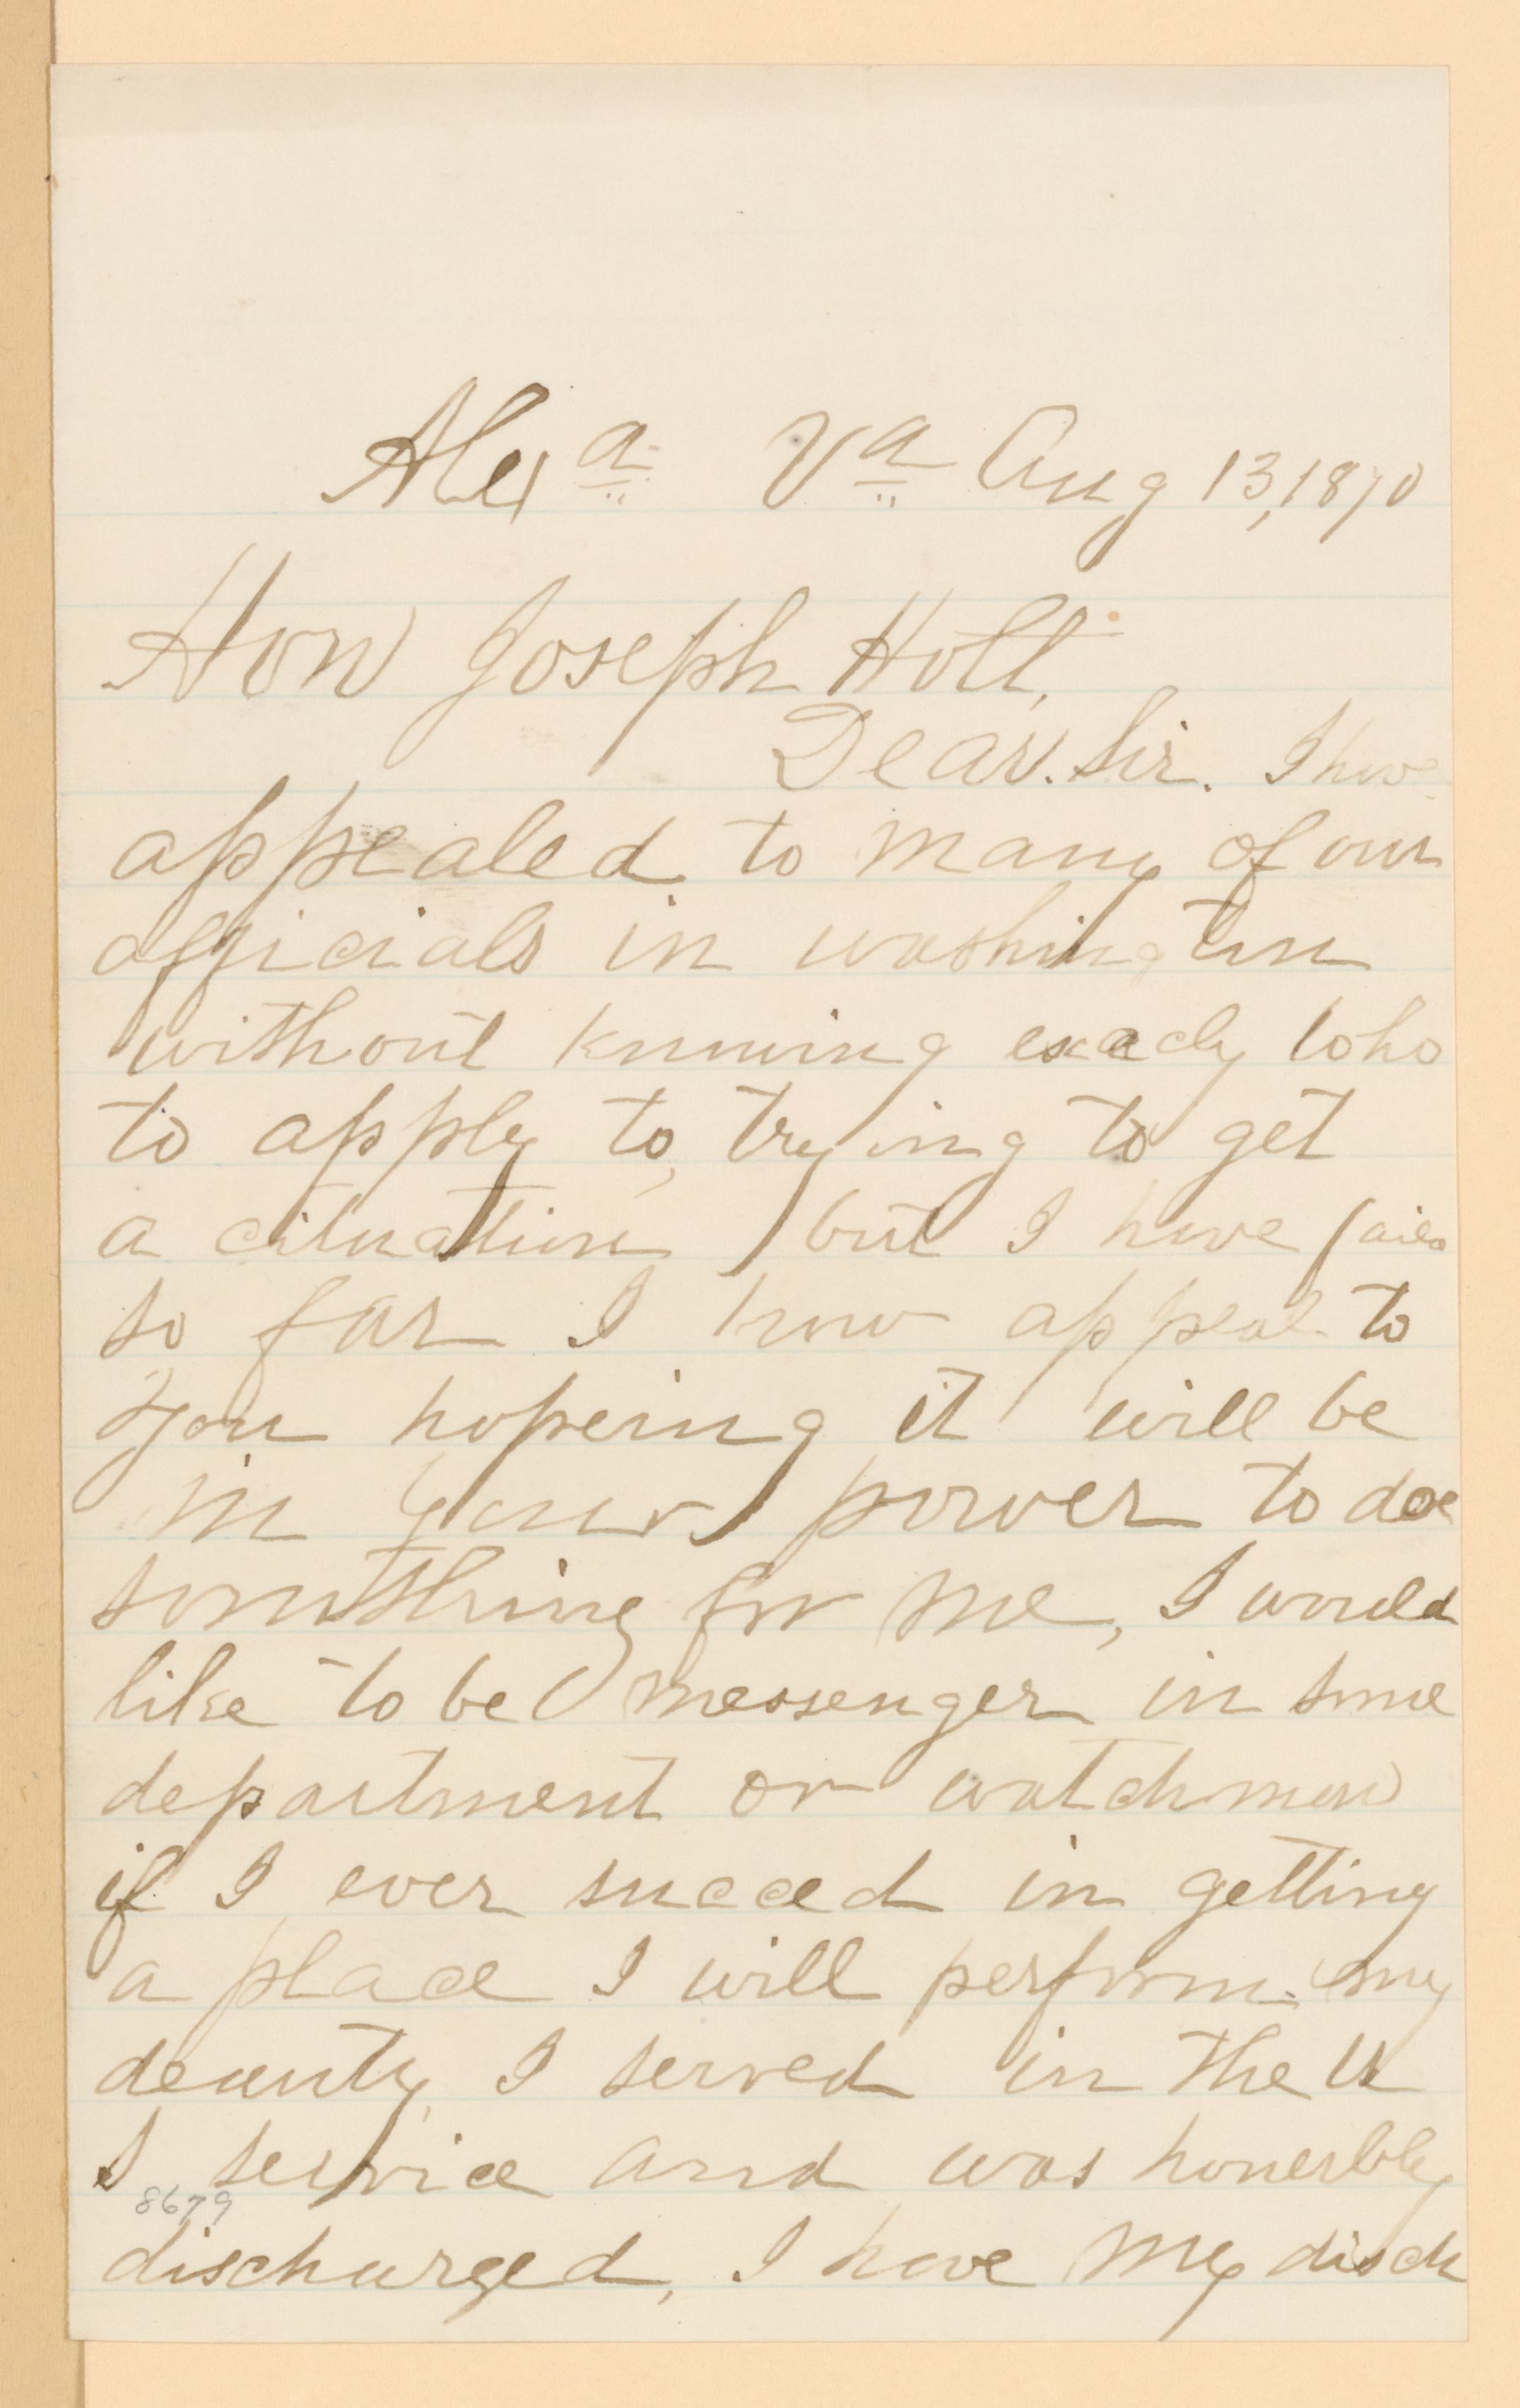 Alexa Va Aug 13, 1870
Hon Joseph Holt,
Dear. Sir. I have
appealed to many of our
officials in washington
without knowing exacly who
to apply to, trying to get
a cituation, but I have failed
so far I now appeal to
you hopeing it will be
in your power to doe
something for me, I would
like to be messenger in some
department or watchman
if I ever succeed in getting
a place I will perform my
deauty, I served in the U
S service and was honerbly
8679
discharged, I have my disch